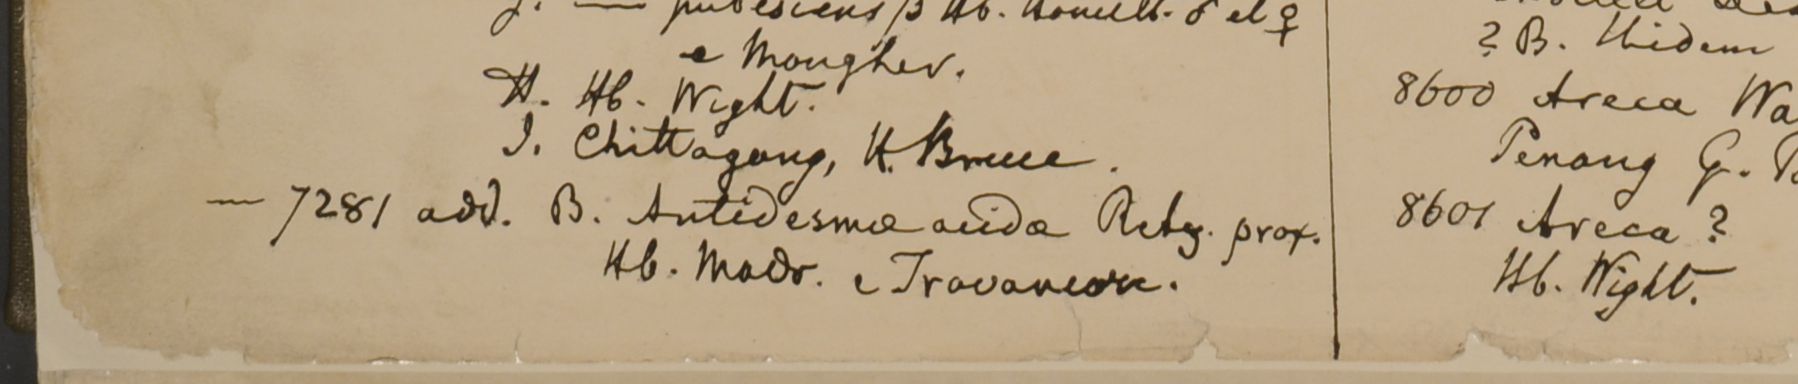 g. — pubescens β Hb. Hamilt. ♂ et ♀
e Mongher.
H. Hb. Wight.
I. Chittagong, H. Bruce.
— 7281 add. B. Antidesmæ acidæ Retz. prox.
Hb. Madr. e Travancore.
? B. Ibidem
8600 Areca Wa
Penang G.
8601 Areca ?
Hb. Wight.